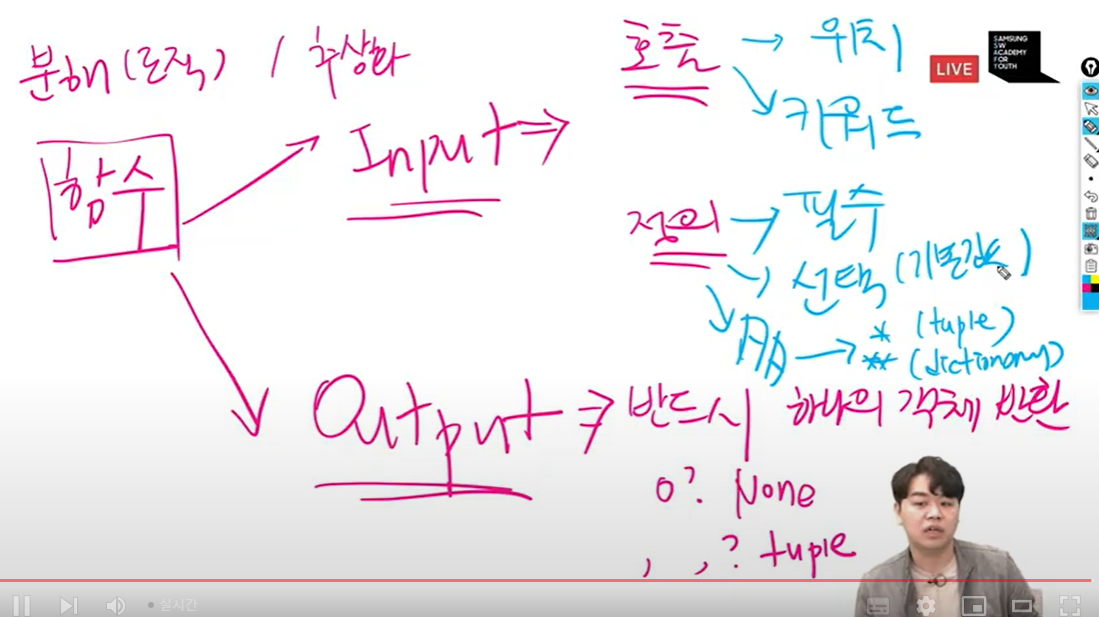 분해(로직) / 추상화
함수
Input ⇒
호출 → 위치
↘ 키워드
정의 → 필수
→ 선택 (기본값도)
→ * (tuple)
** (dictionary)
Output ⇒ 반드시 하나의 객체 반환
0? None
, , ? tuple
LIVE
SAMSUNG
SW
ACADEMY
FOR
YOUTH
실시간